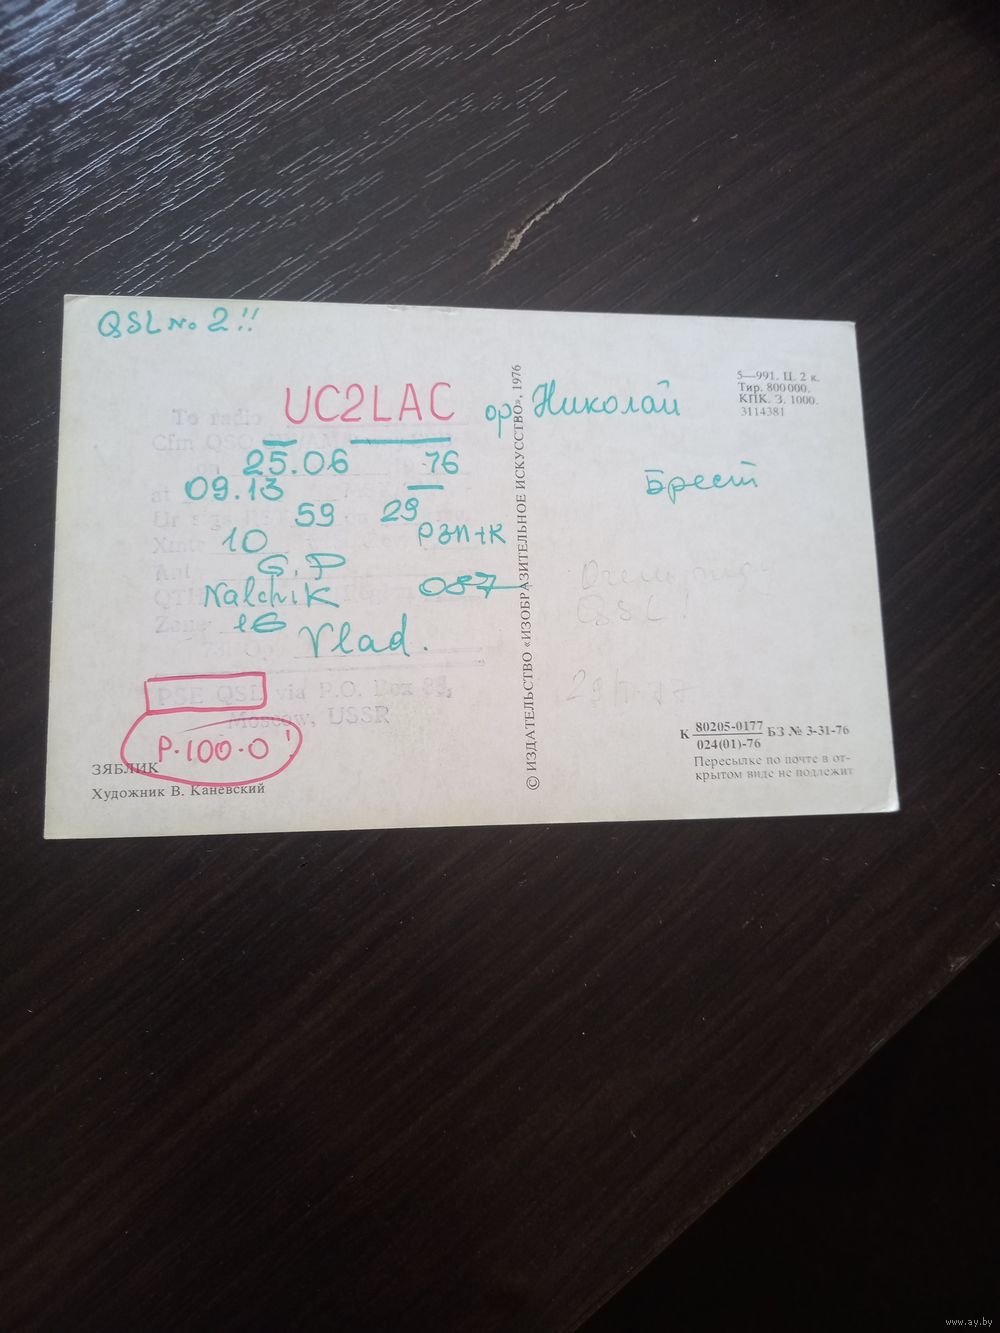 QSL No 2!!
To radio UC2LAC
ор Николай
Cfm QSO
on 25.06 76
at 09.13
59 29
10 РЗП+К
Ant G.P
Nalchik 087
Zone 16
Vlad.
PSE QSL via P.O. Box 88,
Moscow, USSR
P-100-0!
ЗЯБЛИК
Художник В. Каневский
© ИЗДАТЕЛЬСТВО «ИЗОБРАЗИТЕЛЬНОЕ ИСКУССТВО», 1976
5—991. Ц. 2 к.
Тир. 800000.
КПК. З. 1000.
3114381
Брест
QSL!
К 80205-0177 БЗ № 3-31-76
024(01)-76
Пересылке по почте в от-
крытом виде не подлежит
www.ay.by